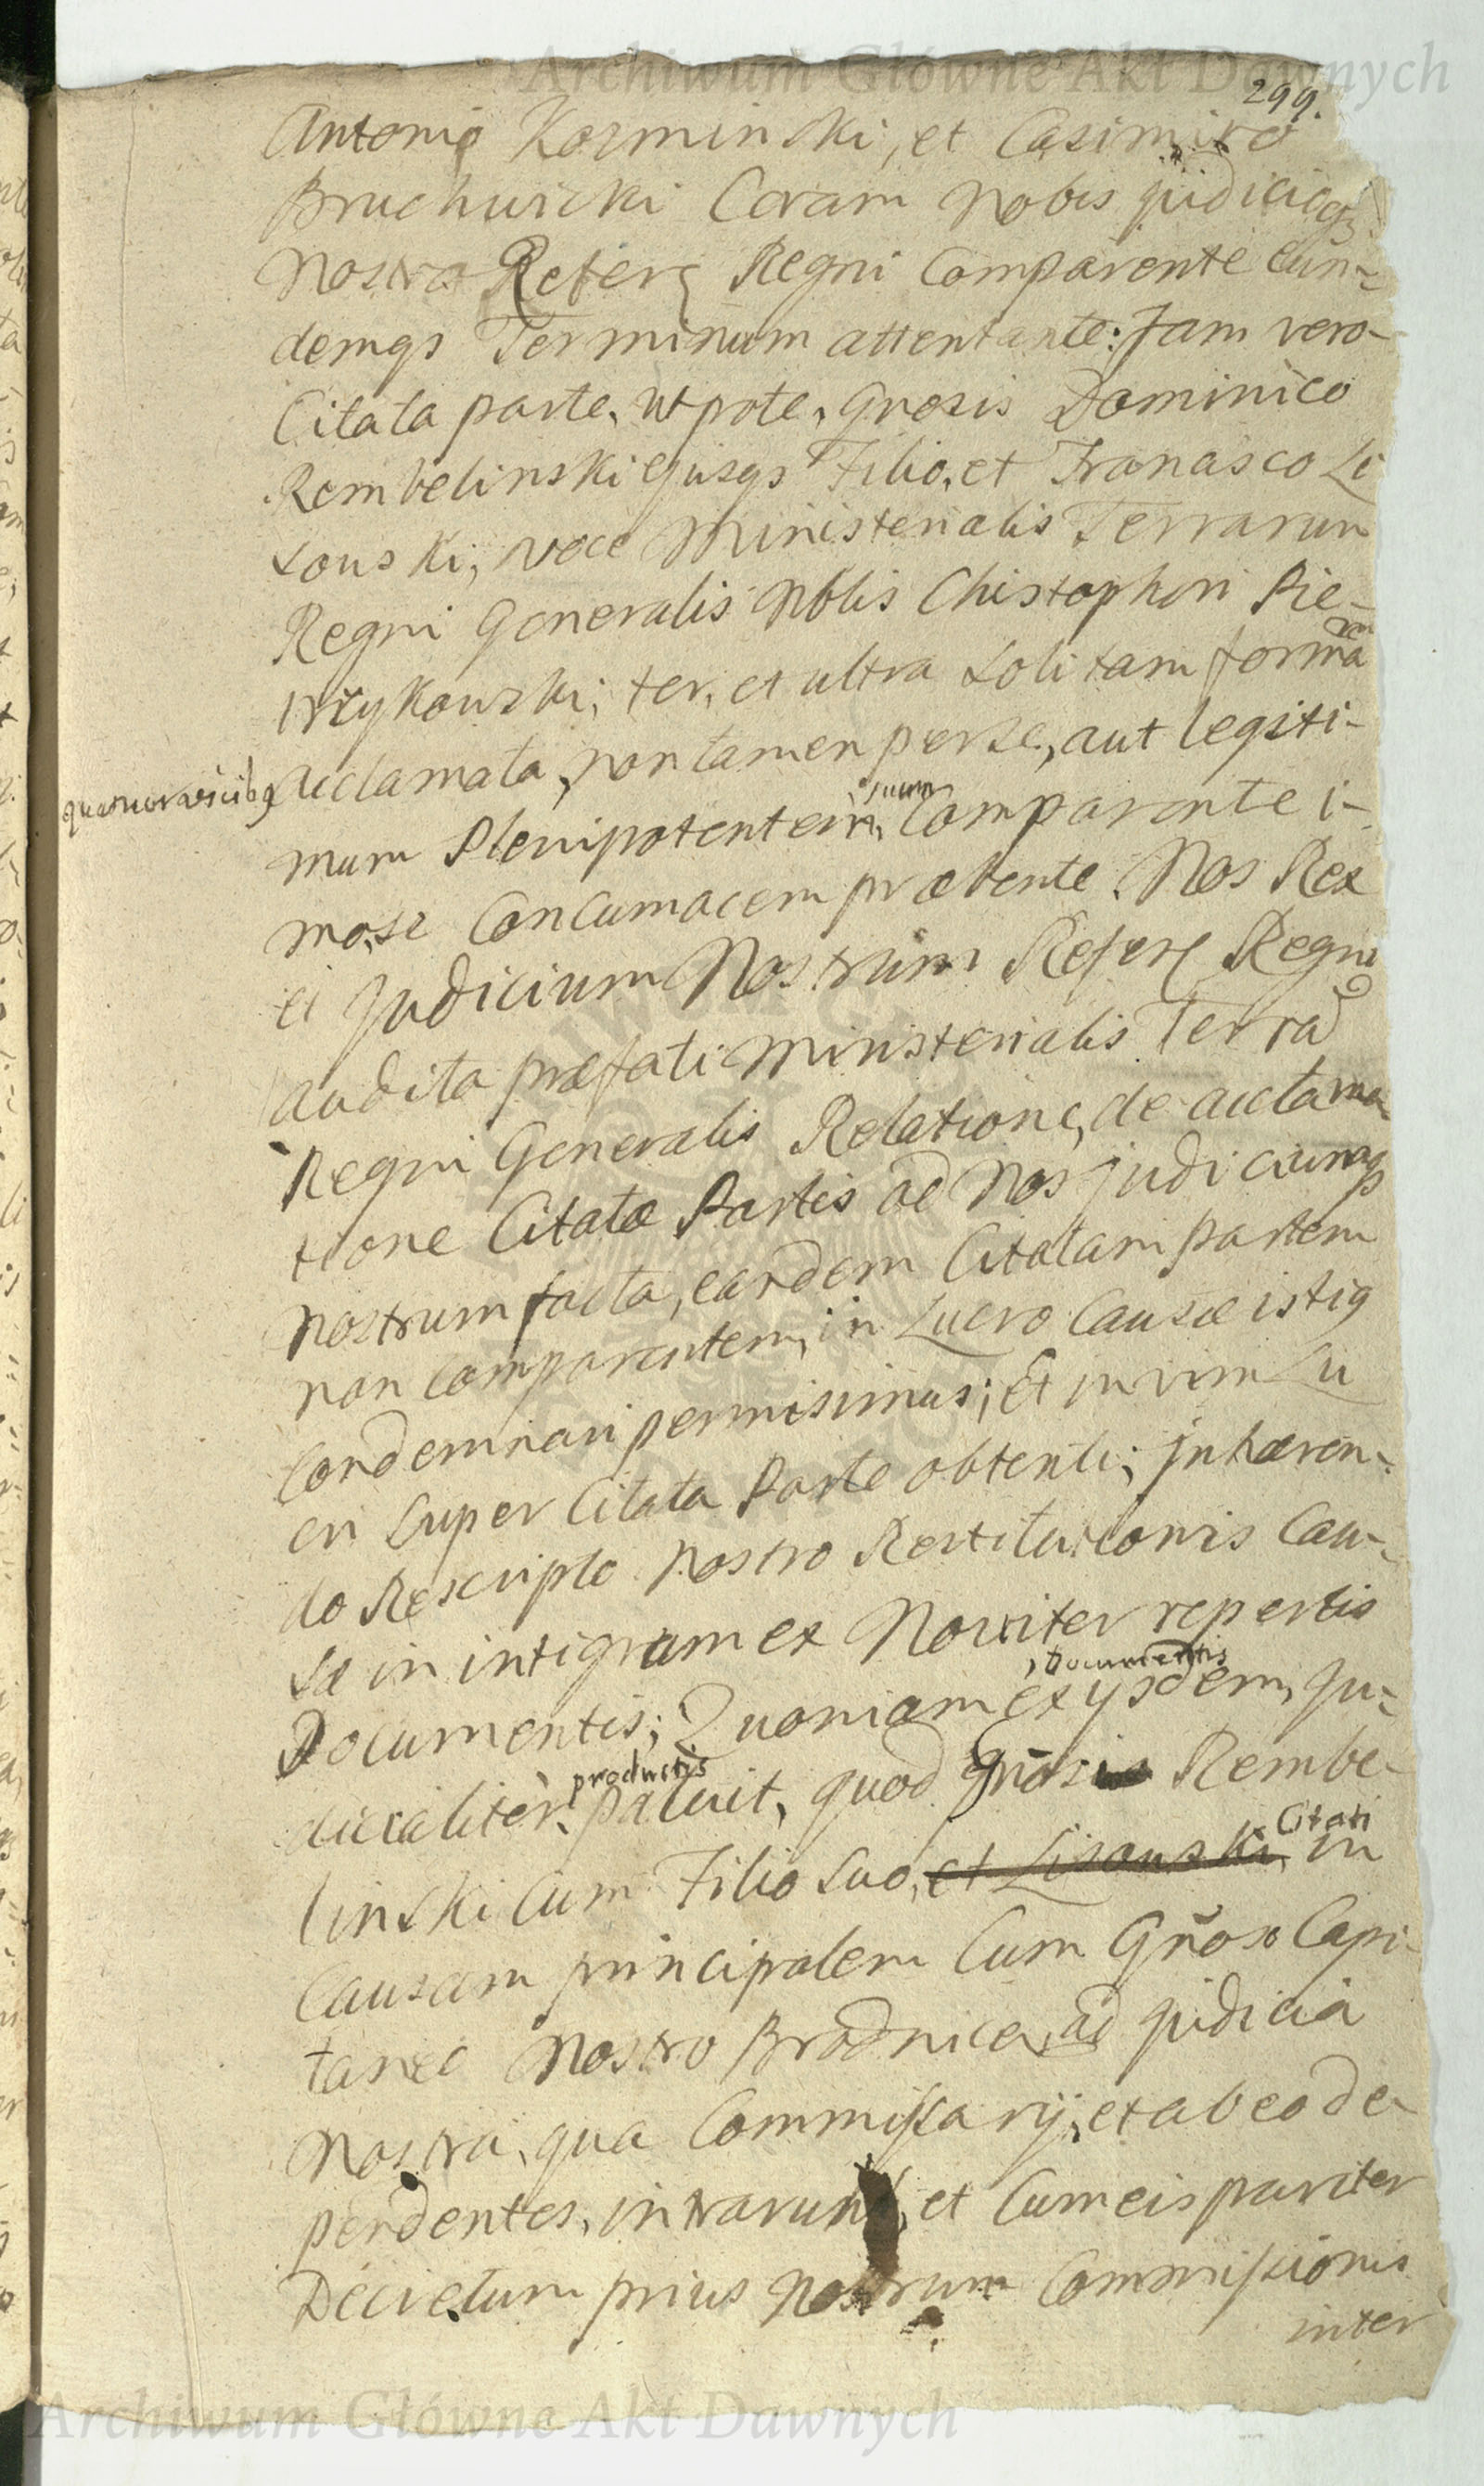 Archiwum Główne Akt Dawnych
299.
Antonio Kozminski, et Casimiro
Bruchwicki Coram Nobis judicioqs
Nostro ReferĘ Regni Comparente eun-
demqs Terminum attentante: Jam vero
Citata parte, utpote, Gnosis Dominico
Rembelinski ejusqs Filio, et Francisco Li
souski, voce Ministerialis Terrarum
Regni Generalis Nblis Chistophori Pie-
trzykouski, ter, et ultra solitam formã
quatuor vicibq acclamata, non tamen per se, aut legiti-
mum Plenipotentem, suum Comparente i-
mo, se Contumacem præbente. Nos Rex
et Judicium Nostrum Refere Regni
audita præfati Ministerialis Terrar
Regni Generalis Relatione, de acclama-
tione Citatæ Partis ad Nos judiciumqs
nostrum facta, eandem Citatam partem
non Comparentem, in Lucro Causæ istiq
Condemnari permisimus; Et in vim Lu
cri super Citata Parte obtenti; inhæren-
do Rescripto Nostro Restitucionis Cau-
sæ in integrum ex Noviter repertis
Documentis; Quoniam ex ijsdem, Documentis ju-
dicialiter, productis patuit, quod Gnosis Rembe-
linski Cum Filio Suo, et Lisouski, Citati in
Causam principalem Cum Gnoso Capi-
taneo Nostro Brodnicen, ad judicia
Nostra, qua Commissarij, et ab eo de-
pendentes, intrarunt, et Cum eis pariter
Decretum prius Nostrum Commissionis
inter
Archiwum Główne Akt Dawnych